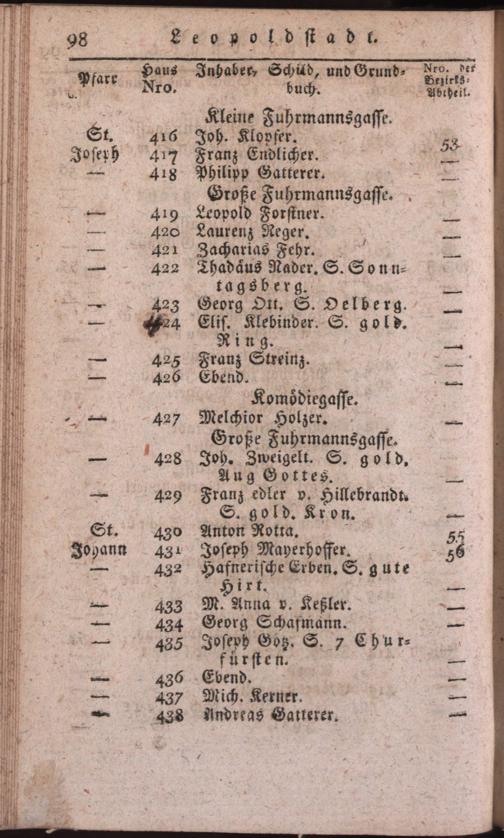 98 Leopoldstadt.
Pfarr Haus Nro. Inhaber, Schild, und Grund- buch. Nro. der Bezirks- Abtheil.
Kleine Fuhrmannsgasse.
St. 416 Joh. Klopfer. 53
Joseph 417 Franz Endlicher. —
— 418 Philipp Gatterer. —
Große Fuhrmannsgasse.
— 419 Leopold Forstner. —
— 420 Laurenz Reger. —
— 421 Zacharias Fehr. —
— 422 Thadäus Nader. S. Sonn-
tagsberg. —
— 423 Georg Ott. S. Oelberg. —
— 424 Elis. Klebinder. S. gold.
Ring. —
— 425 Franz Streinz. —
— 426 Ebend. —
Komödiegasse.
— 427 Melchior Holzer. —
Große Fuhrmannsgasse.
— 428 Joh. Zweigelt. S. gold.
Aug Gottes. —
— 429 Franz edler v. Hillebrandt.
S. gold. Kron. —
St. 430 Anton Rotta. 55
Johann 431 Joseph Mayerhoffer. 56
— 432 Hafnerische Erben. S. gute
Hirt. —
— 433 M. Anna v. Keßler. —
— 434 Georg Schafmann. —
— 435 Joseph Götz. S. 7 Chur-
fürsten. —
— 436 Ebend. —
— 437 Mich. Kerner. —
— 438 Andreas Gatterer. —